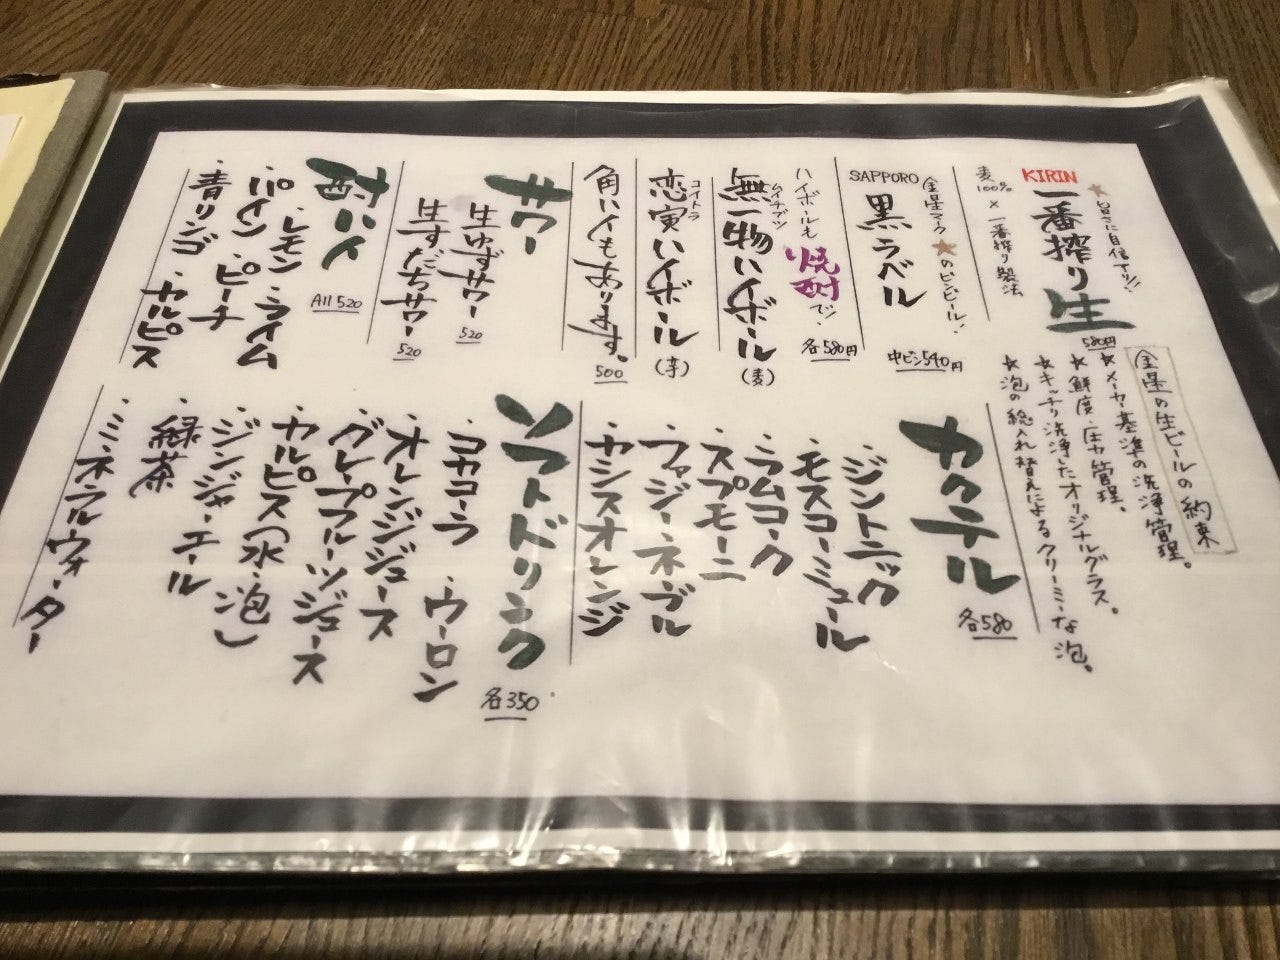 ★旨さに自信アリ!!
KIRIN
一番搾り生
580円
麦100%×一番搾り製法
金星の生ビールの約束
★メーカー基準の洗浄管理。
★鮮度・圧力管理。
★キッチリ洗浄したオリジナルグラス。
★泡の総入れ替えによるクリーミーな泡。
金星マーク★のビンビール!
SAPPORO
黒ラベル
中ビン540円
ハイボールも
焼酎で!
各580円
ムイチブツ
無一物ハイボール(麦)
コイトラ
恋寅ハイボール(芋)
角ハイもあります。
500
サワー
生ゆずサワー
520
生すだちサワー
520
酎ハイ
All 520
・レモン・ライム
・パイン・ピーチ
・青リンゴ・カルピス
カクテル
各580
・ジントニック
・モスコーミュール
・ラムコーク
・スプモーニ
・ファジーネーブル
・カシスオレンジ
ソフトドリンク
各350
・コカコーラ・ウーロン
・オレンジジュース
・グレープフルーツジュース
・カルピス(水・泡)
・ジンジャーエール
・緑茶
・ミネラルウォーター